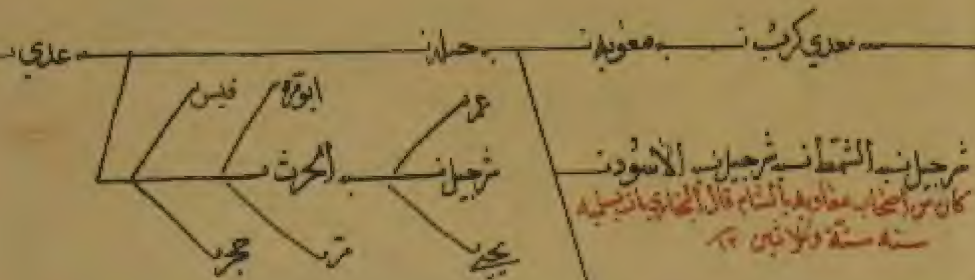 معدي كرب بن معوية بن جبلة بن عدي بن
قيس ابو قرة عمر
شرحبيل بن السمط بن شرحبيل بن الاسود بن
شرحبيل بن الحرث بن
كان من اصحاب معاوية بالشام قال البخاري
سنه ستة وثلاثين
يحيى حجر